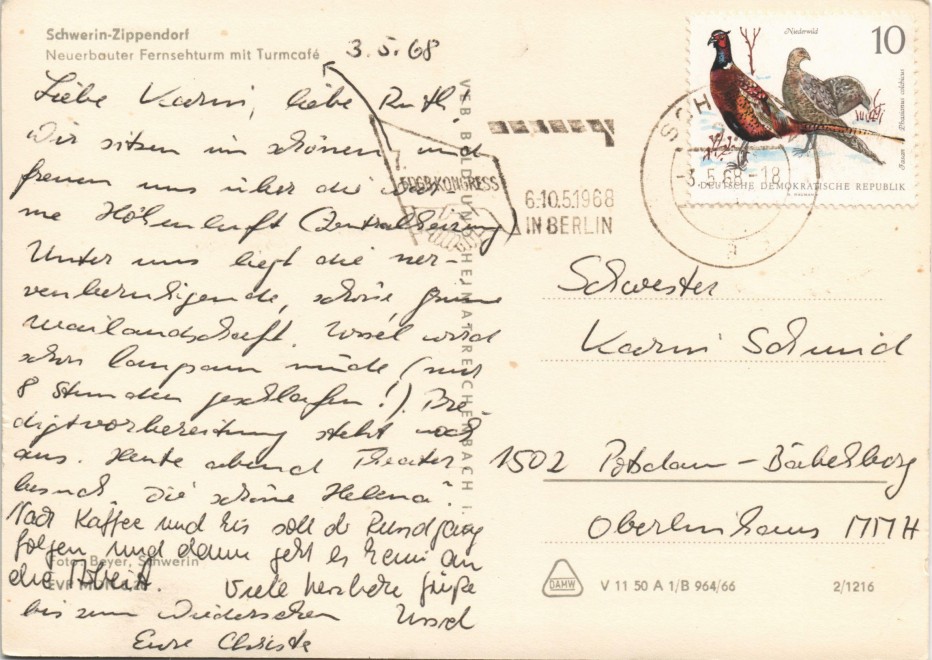 Schwerin-Zippendorf
Neuerbauter Fernsehturm mit Turmcafé
3.5.68
Liebe Karin, liebe Ruth!
Wir sitzen im schönen und
freuen uns über die
me Höhenluft (Zentralheizung
Unter uns liegt die ner-
venberuhigende, schöne grüne
Mailandschaft. Ursel wird
schon langsam müde (nur
8 Stunden geschlafen!). Pre-
digtvorbereitung steht noch
aus. Heute abend Theater
besuch "Die schöne Helena".
Nach Kaffee und Eis soll der Rundgang
folgen, und dann geht es heim an
die Arbeit. Viele herzliche Grüße
bis zum Wiedersehen Ursel
Eure Christa
Foto: Beyer, Schwerin
EVP MDN
VEB BILD UND HEIMAT REICHENBACH I.
FDGB-KONGRESS
6.-10.5.1968
IN BERLIN
SCH
-3.5.68-18
a
Niederwild
10
Fasan Phasianus colchicus
DEUTSCHE DEMOKRATISCHE REPUBLIK
Schwester
Karin Schmid
1502 Potsdam-Babelsberg
Oberlinhaus MMH
DAMW
V 11 50 A 1/B 964/66
2/1216